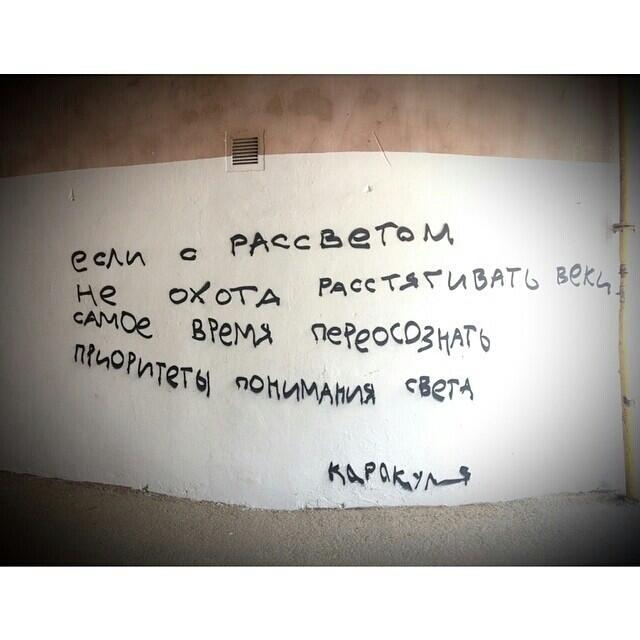 если с рассветом
не охота расстягивать веки
самое время переосознать
приоритеты понимания света
каракуля